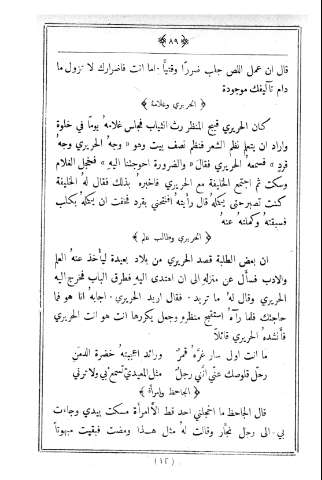 ﴿ ٨٩ ﴾
قال ان عمل اللص جاب ضررًا وقتيًّا اما انت فاضرارك لا تزول ما
دام تآليفك موجودة
﴿ الحريري وغلامه ﴾
كان الحريري قبيح المنظر رث الثياب فجلس غلامه يومًا في خلوة
واراد ان يتعلم نظم الشعر فنظم نصف بيت وهو « وجه الحريري وجه
قرد » فسمعه الحريري فقال « والضرورة احوجتنا اليه » فخجل الغلام
وسكت ثم اجتمع الخليفة مع الحريري فاخبره بذلك فقال له الخليفة
كنت تصبر حتى يتمكله قال رأيته افتتحني بقرد فخفت ان يتمكله بكلب
فسبقته وكملته عنه
﴿ الحريري وطالب علم ﴾
ان بعض الطلبة قصد الحريري من بلاد بعيدة ليأخذ عنه العلم
والادب فسأل عن منزله الى ان اهتدى اليه فطرق الباب فخرج اليه
الحريري وقال له ما تريد . فقال اريد الحريري . اجابه انا هو فما
حاجتك فلما رآه استقبح منظره وجعل يكررها انت هو انت الحريري
فأنشده الحريري قائلاً
ما انت اول سار غره قمر ورائد اعجبته خضرة الدمن
رحل قلوصك عني انني رجل مثل المعيدي تسمع بي ولا ترني
﴿ الجاحظ وامرأة ﴾
قال الجاحظ ما اخجلني احد قط الا امرأة مسكت بيدي وجاءت
بي الى رجل نجار وقالت له مثل هذا ومضت فبقيت مبهوتاً
(١٢)